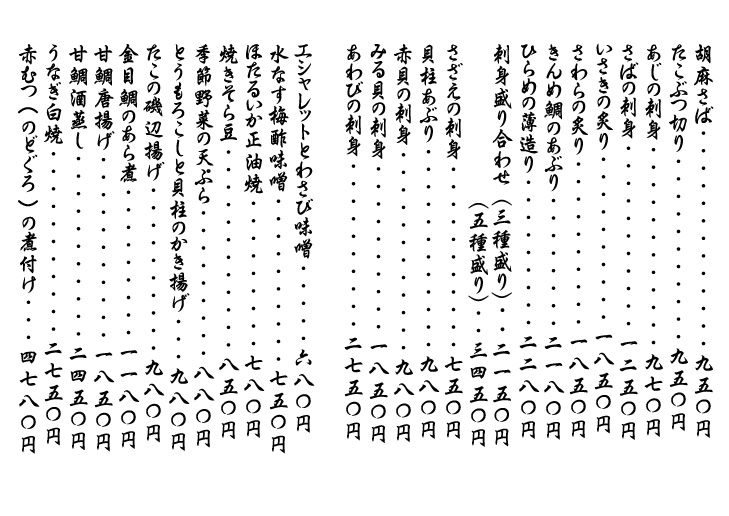 胡麻さば・・・・・・・・・・九五〇円
たこぶつ切り・・・・・・・・九五〇円
あじの刺身・・・・・・・・・九七〇円
さばの刺身・・・・・・・・・一二五〇円
いさきの炙り・・・・・・・・一八五〇円
さわらの炙り・・・・・・・・一八五〇円
きんめ鯛のあぶり・・・・・・二一八〇円
ひらめの薄造り・・・・・・・二二八〇円
刺身盛り合わせ(三種盛り)・・二一五〇円
(五種盛り)・・三四五〇円
さざえの刺身・・・・・・・・七五〇円
貝柱あぶり・・・・・・・・・九八〇円
赤貝の刺身・・・・・・・・・九八〇円
みる貝の刺身・・・・・・・・一八五〇円
あわびの刺身・・・・・・・・二七五〇円
エシャレットとわさび味噌・・・・・六八〇円
水なす梅酢味噌・・・・・・・・七五〇円
ほたるいか正油焼・・・・・・・七八〇円
焼きそら豆・・・・・・・・・・八五〇円
季節野菜の天ぷら・・・・・・・八八〇円
とうもろこしと貝柱のかき揚げ・・・九八〇円
たこの磯辺揚げ・・・・・・・・九八〇円
金目鯛のあら煮・・・・・・・・一一八〇円
甘鯛唐揚げ・・・・・・・・・・一八五〇円
甘鯛酒蒸し・・・・・・・・・・二四五〇円
うなぎ白焼・・・・・・・・・・二七五〇円
赤むつ(のどぐろ)の煮付け・・・四七八〇円